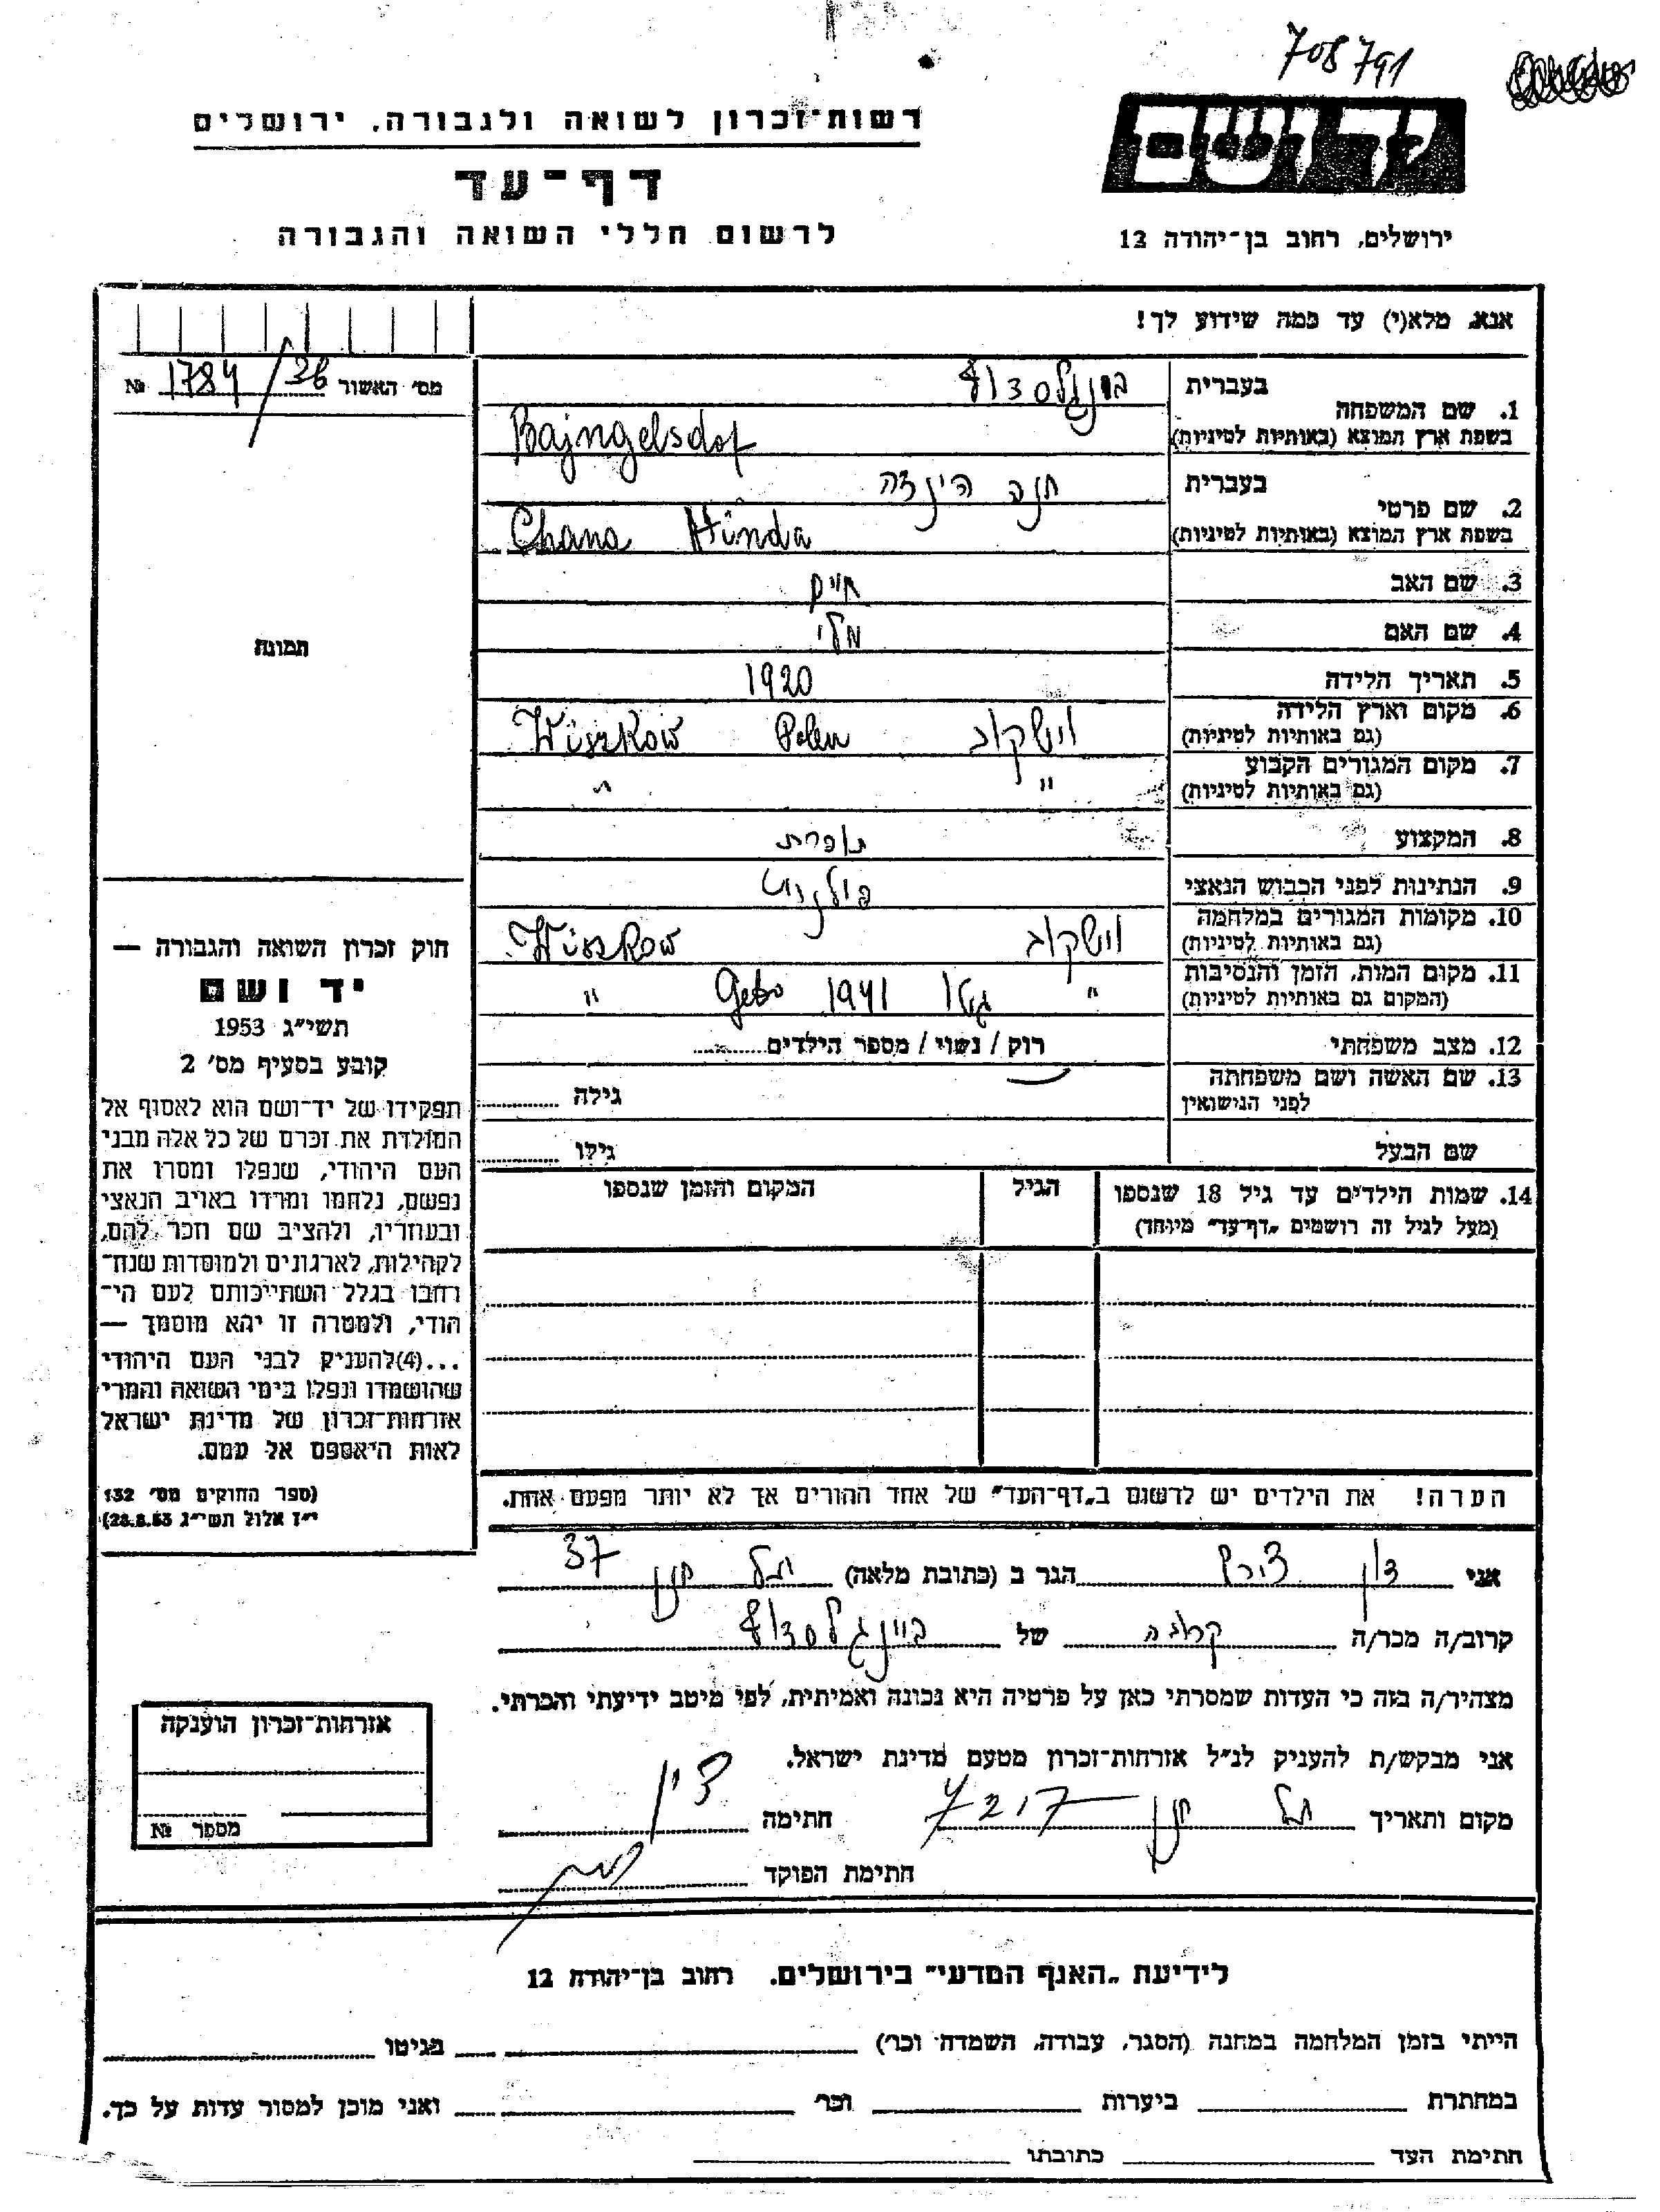 708791
רשות־זכרון לשואה ולגבורה, ירושלים
דף־עד
לרשום חללי השואה והגבורה
יד ושם
ירושלים, רחוב בן־יהודה 12
אנא, מלא(י) עד כמה שידוע לך!
מס׳ האשור 1784/36 №
תמונה
1. שם המשפחה
בעברית
ביינגלסדורף
בשפת ארץ המוצא (באותיות לטיניות)
Bajngelsdof
2. שם פרטי
בעברית חנה הינדה
בשפת ארץ המוצא (באותיות לטיניות)
Chana Hinda
3. שם האב חיים
4. שם האם מלי
5. תאריך הלידה 1920
6. מקום וארץ הלידה
(גם באותיות לטיניות) וישקוב Polen Wiszkow
7. מקום המגורים הקבוע
(גם באותיות לטיניות) " "
8. המקצוע תופרת
9. הנתינות לפני הכבוש הנאצי פולנית
10. מקומות המגורים במלחמה
(גם באותיות לטיניות) וישקוב Wiszkow
11. מקום המות, הזמן והנסיבות
(המקום גם באותיות לטיניות) " גטו 1941 Geto "
12. מצב משפחתי רוק / נשוי / מספר הילדים
13. שם האשה ושם משפחתה
לפני הנישואין גילה
שם הבעל גילו
14. שמות הילדים עד גיל 18 שנספו הגיל המקום והזמן שנספו
(מעל לגיל זה רושמים „דף־עד" מיוחד)
הערה! את הילדים יש לרשום ב„דף־העד" של אחד ההורים אך לא יותר מפעם אחת.
חוק זכרון השואה והגבורה —
יד ושם
תשי״ג 1953
קובע בסעיף מס׳ 2
תפקידו של יד־ושם הוא לאסוף אל
המולדת את זכרם של כל אלה מבני
העם היהודי, שנפלו ומסרו את
נפשם, נלחמו ומרדו באויב הנאצי
ובעוזריו, ולהציב שם וזכר להם,
לקהילות, לארגונים ולמוסדות שנח־
רבו בגלל השתייכותם לעם הי־
הודי, ולמטרה זו יהא מוסמך —
...(4) להעניק לבני העם היהודי
שהושמדו ונפלו בימי השואה והמרי
אזרחות־זכרון של מדינת ישראל
לאות היאספם אל עמם.
(ספר החוקים מס׳ 132
י״ז אלול תשי״ג 28.8.53)
אני הגר ב (כתובת מלאה) תל חנן 37
קרוב/ה מכר/ה קרובה של ביינגלסדורף
מצהיר/ה בזה כי העדות שמסרתי כאן על פרטיה היא נכונה ואמיתית, לפי מיטב ידיעתי והכרתי.
אני מבקש/ת להעניק לנ״ל אזרחות־זכרון מטעם מדינת ישראל.
מקום ותאריך תל חנן חתימה
חתימת הפוקד
אזרחות־זכרון הוענקה
מספר №
לידיעת „האגף המדעי" בירושלים. רחוב בן־יהודה 12
הייתי בזמן המלחמה במחנה (הסגר, עבודה, השמדה וכר׳) בגיטו
במחתרת ביערות וכר׳ ואני מוכן למסור עדות על כך.
חתימת העד כתובתו